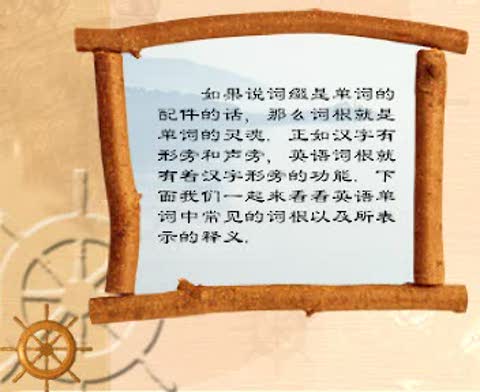 如果说词缀是单词的
配件的话，那么词根就是
单词的灵魂．正如汉字有
形旁和声旁，英语词根就
有着汉字形旁的功能．下
面我们一起来看看英语单
词中常见的词根以及所表
示的释义．